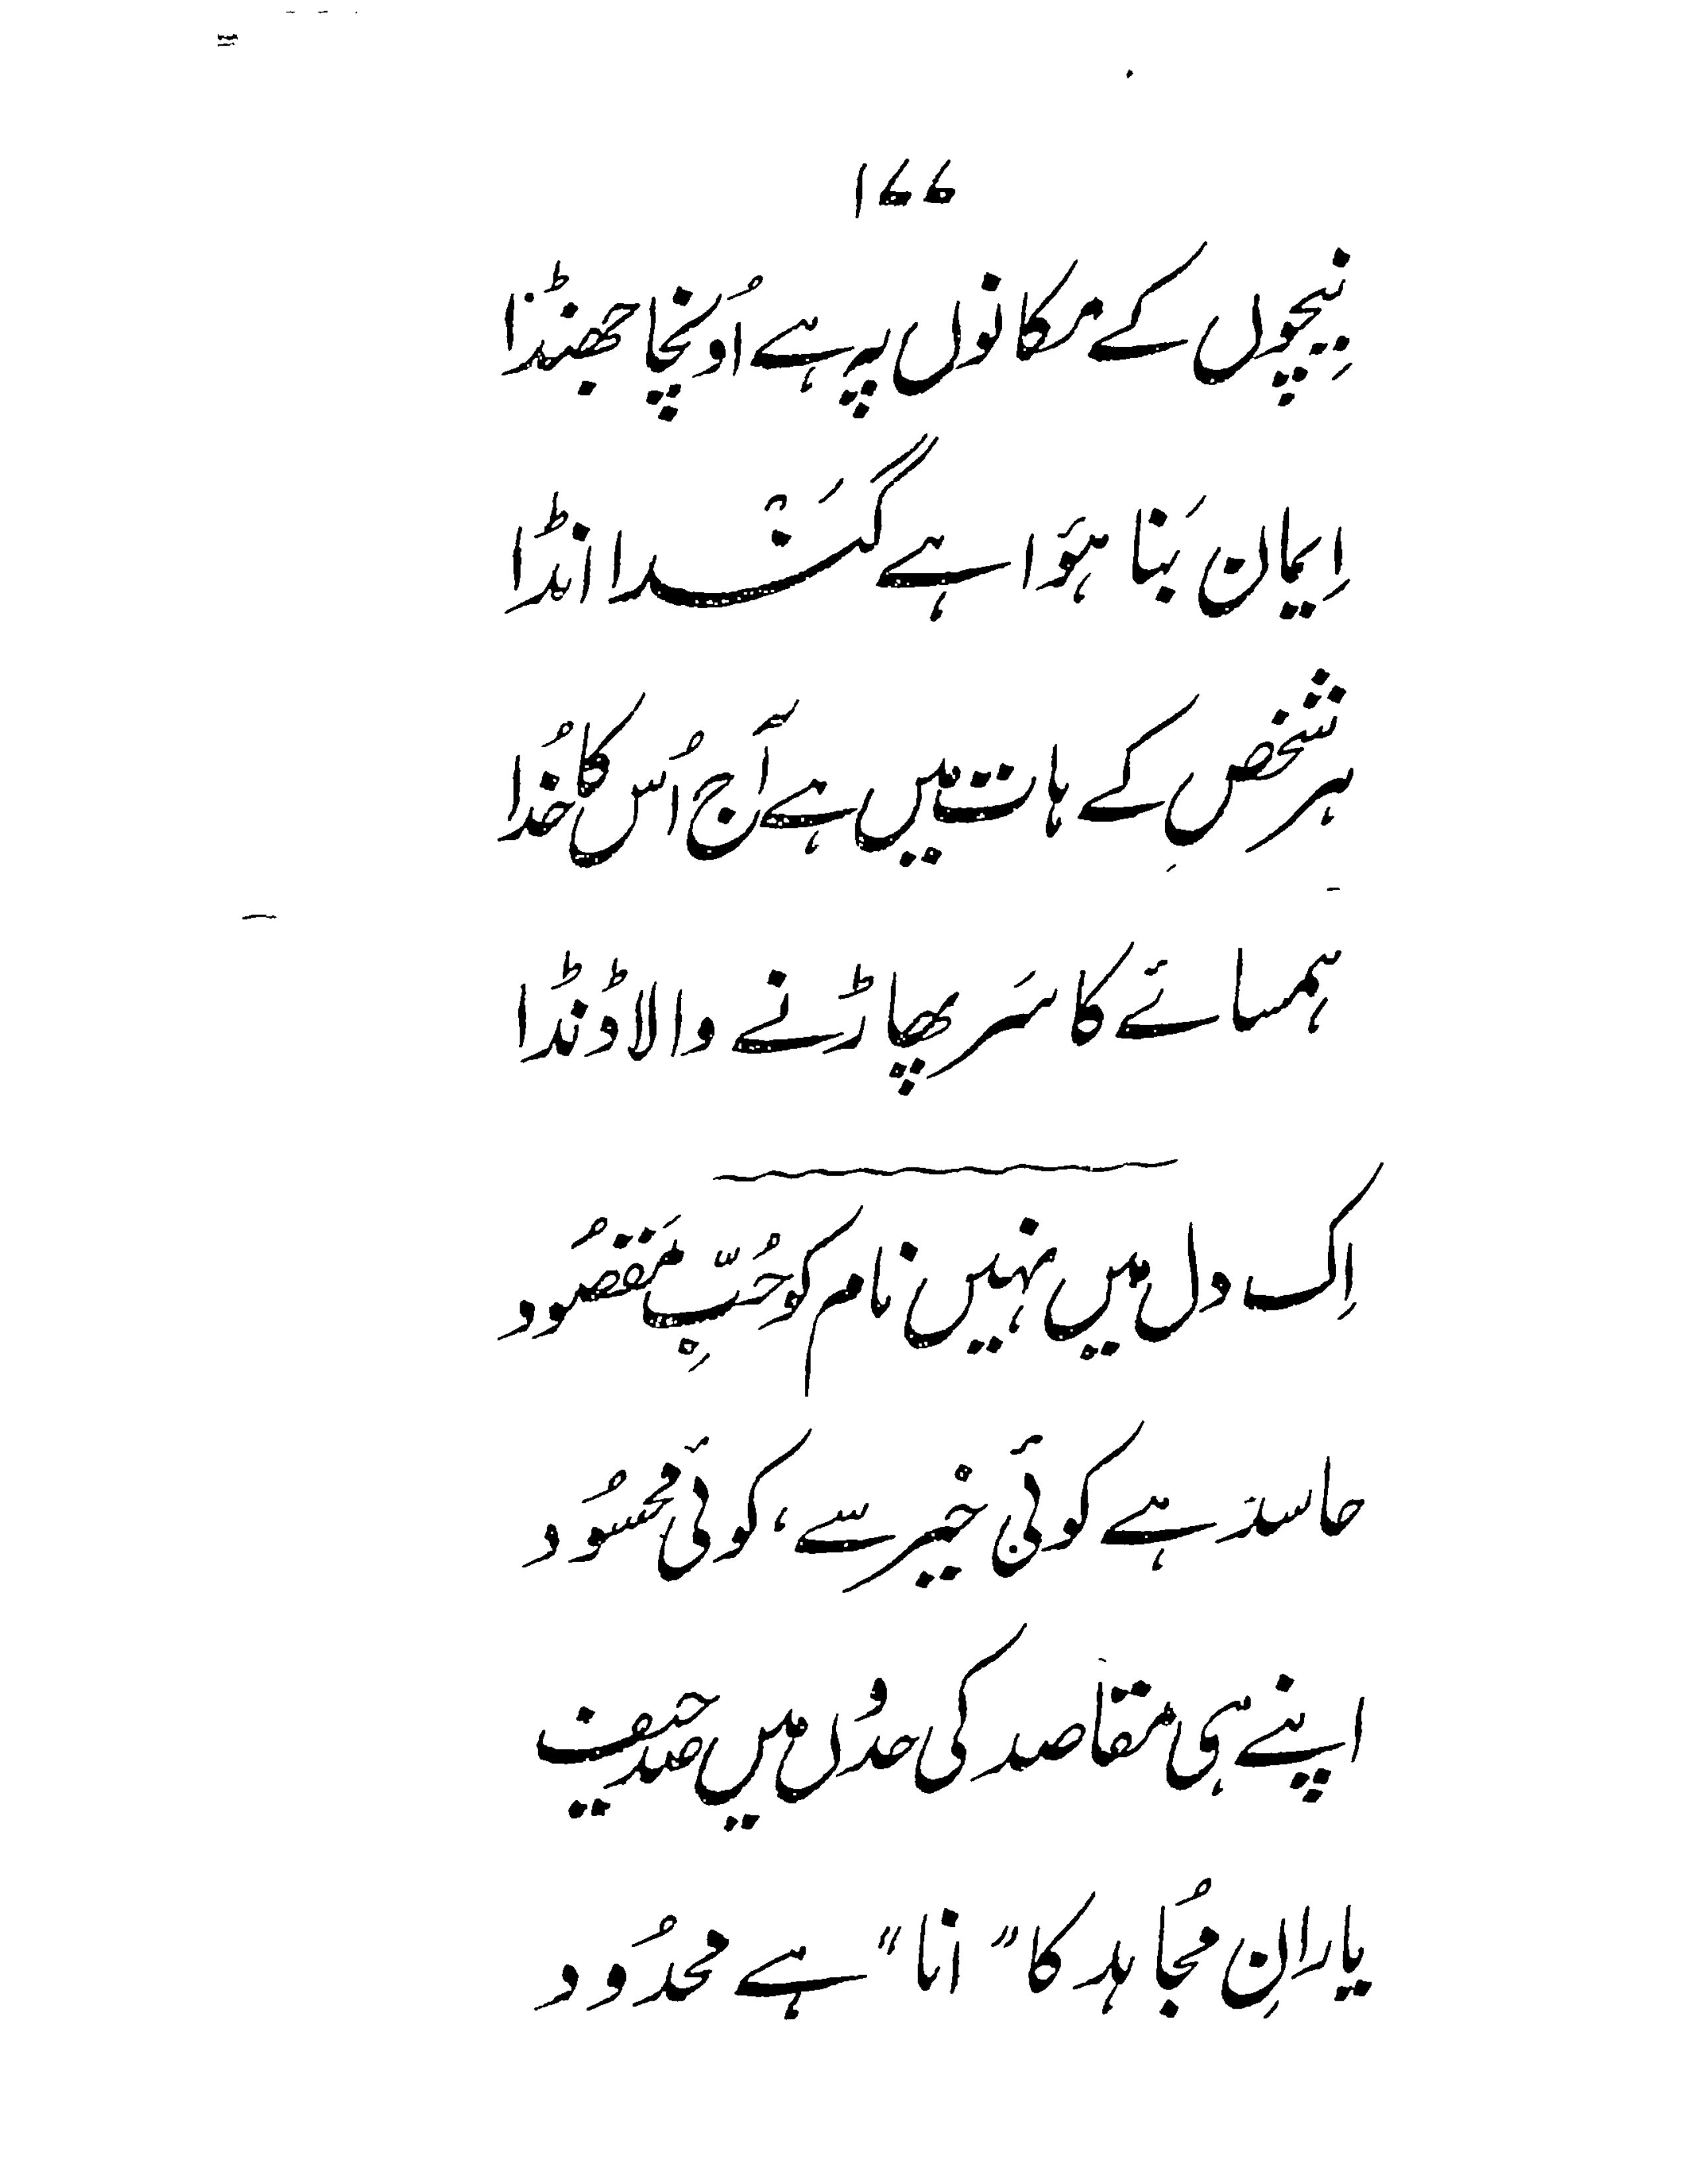 ۱۷۷
نِیچوں کے مکانوں پہ ہے اُونچا جھنڈا
اِیمان بَنا ہوَا ہے گَنْدا انڈا
ہر شخص کے ہات میں ہے آج اُس کا خُدا
ہمسائے کا سَر پھاڑنے والا ڈنڈا
اِک دل میں نہیں نام کو حُبِّ مَقصُود
حاسد ہے کوئی خیر سے، کوئی محسُود
اپنے ہی مقاصد کی حدُوں میں صد حیف
یارانِ مُجاہد کا "انا" ہے محدُود